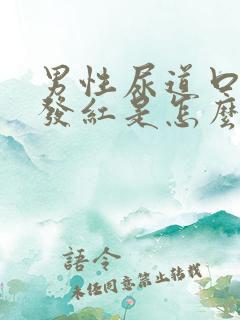 男性尿道口
發紅是怎麼
語令
未經同意禁止轉載